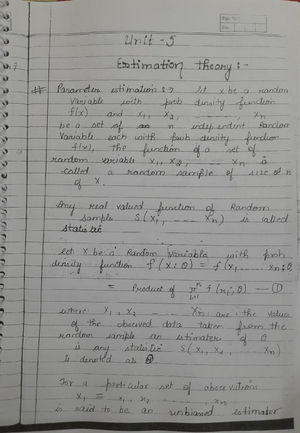 Unit - 5
Estimation theory :-
# Parameter estimation :→ let x be a random
Variable with prob density function
f(x) and x1, x2, ........ xn
be a set of an n independent Random
Variable each with prob density function
f(x), the function of a set of
random variable x1, x2, .. xn is
called a random sample of size of n
of X.
Any real valued function of Random
sample S(x1, ---- xn) is called
Statistic
let X be a Random Variable with prob
density function f(x : θ) = f(x1, .... xn; θ)
= Product of π f(xi, θ) — ①
where x1, x2 - - - xn are the values
of the observed data taken from the
random sample an estimater of θ
is any statistic S(x1, x2, - - xn)
is denoted as
For a particular set of observations
x1 = x1, x2, ........ xn
is said to be an unbiased estimater